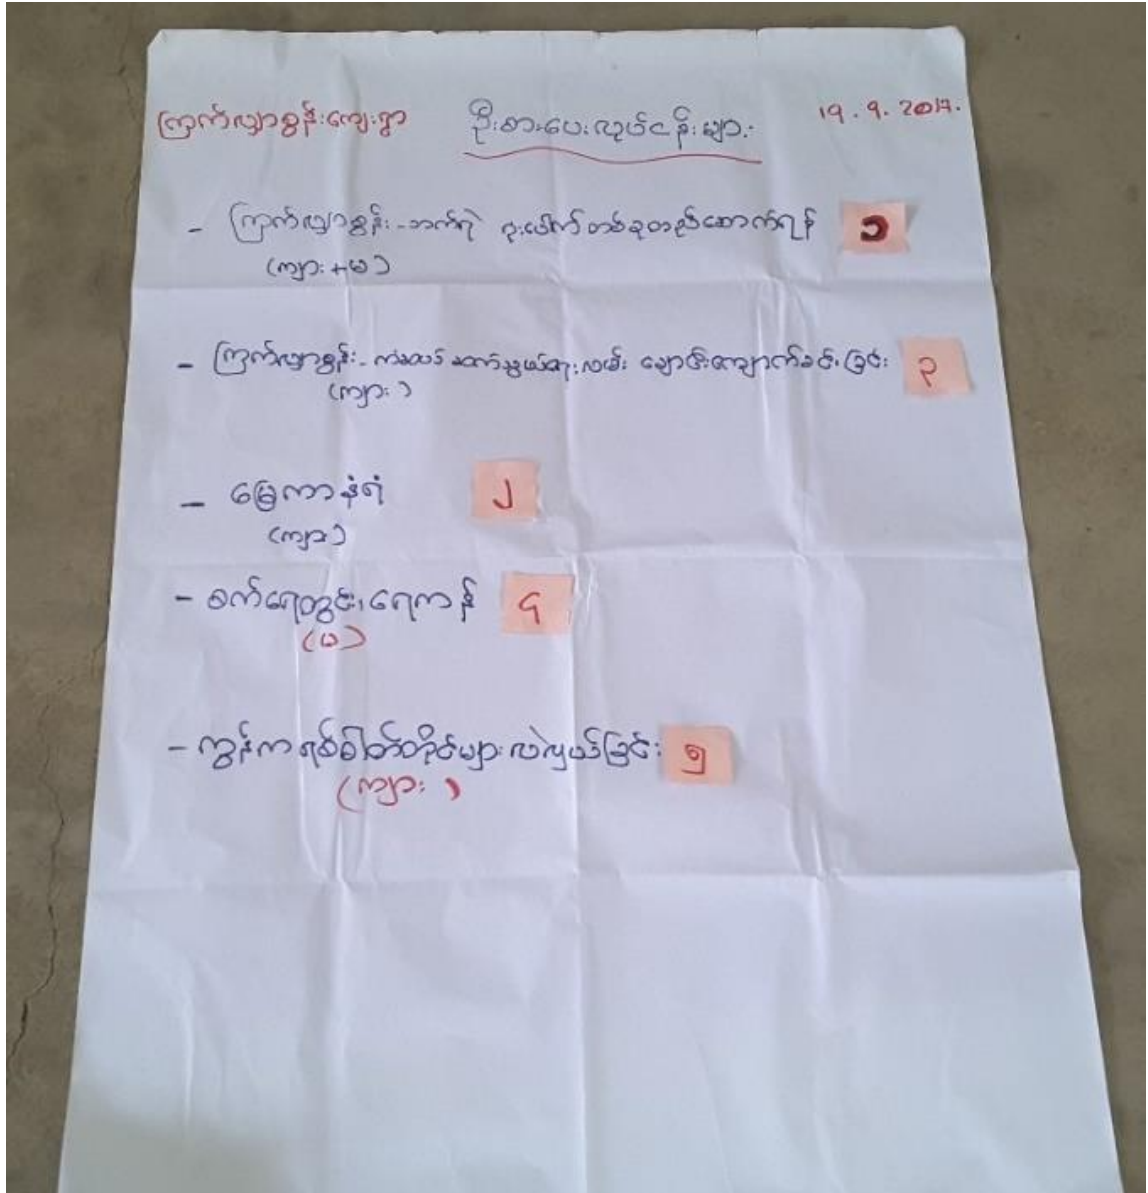 ကြက်လျှာစွန်းကျေးရွာ ဦးစားပေးလုပ်ငန်းများ 19.9.2017.
- ကြက်လျှာစွန်း-ဘက်ရဲ ဂူးပေါက် တစ်ခုတည်ဆောက်ရန် ၁
(ကျား+မ)
- ကြက်လျှာစွန်း- ဆက်သွယ်ရေးလမ်း ချောင်းကျောက်ခင်းခြင်း ၃
(ကျား)
- မြေကာနံရံ ၂
(ကျား)
- စက်ရေတွင်း၊ ရေကန် ၄
(မ)
- ကွန်ကရစ်ဓါတ်တိုင်များလဲလှယ်ခြင်း ၅
(ကျား)